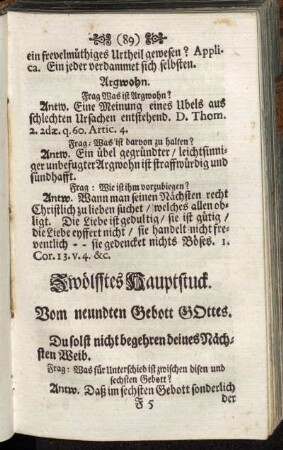 (89)
ein frevelmüthiges Urtheil gewesen? Appli-
ca. Ein jeder verdammet sich selbsten.
Argwohn.
Frag Was ist Argwohn?
Antw. Eine Meinung eines Ubels auß
schlechten Ursachen entstehend. D. Thom.
2. 2dæ. q. 60. Artic. 4.
Frag: Was ist darvon zu halten?
Antw. Ein übel gegründter / leichtsinni-
ger unbefugter Argwohn ist straffwürdig und
sündhafft.
Frag: Wie ist ihm vorzubiegen?
Antw. Wann man seinen Nächsten recht
Christlich zu lieben suchet / welches allen ob-
ligt. Die Liebe ist gedultig / sie ist gütig /
die Liebe eyffert nicht / sie handelt nicht fre-
ventlich -- sie gedencket nichts Böses. 1.
Cor. 13. v. 4. &c.
Zwölfftes Hauptstuck.
Vom neundten Gebott GOttes.
Du solst nicht begehren deines Näch-
sten Weib.
Frag: Was für Unterschied ist zwischen disen und
sechsten Gebott?
Antw. Daß im sechsten Gebott sonderlich
F 5 der